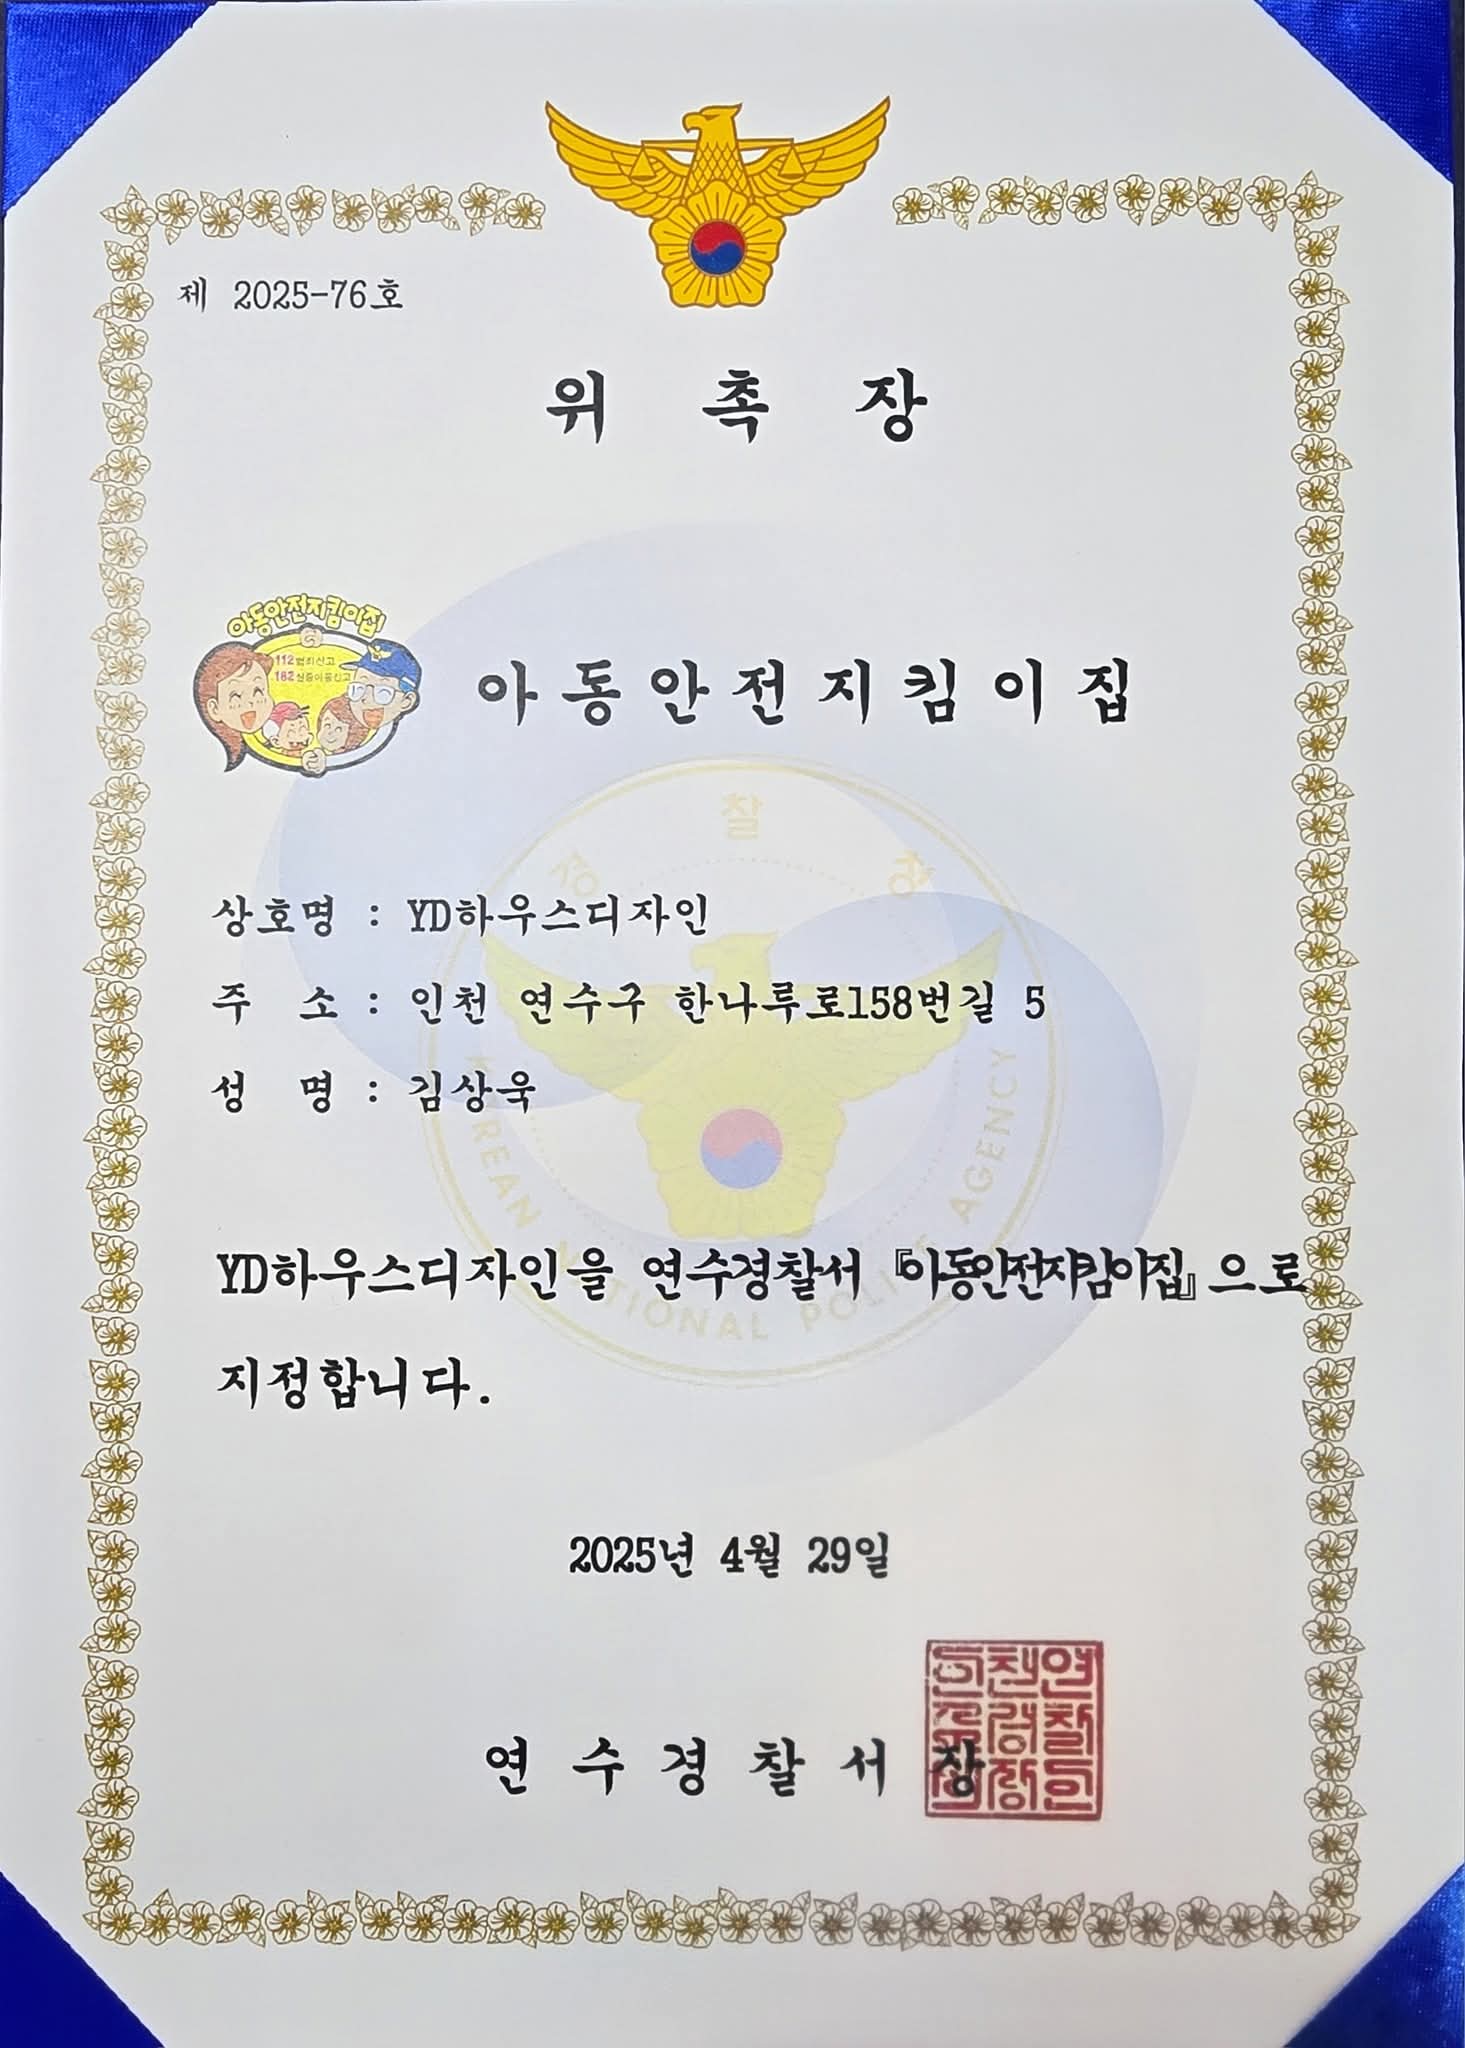 제 2025-76호
위 촉 장
아동안전지킴이집
112범죄신고
182실종아동신고
아동안전지킴이집
상호명 : YD하우스디자인
주 소 : 인천 연수구 한나루로158번길 5
성 명 : 김상욱
경찰청
KOREAN NATIONAL POLICE AGENCY
YD하우스디자인을 연수경찰서 『아동안전지킴이집』으로
지정합니다.
2025년 4월 29일
연 수 경 찰 서 장